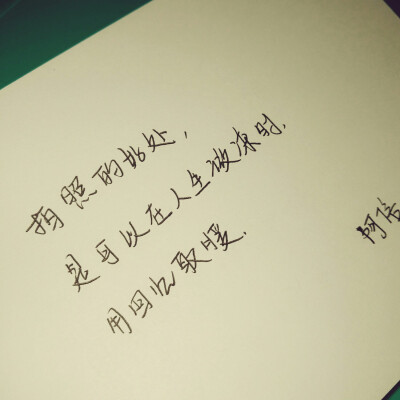 拍照的好处，
是可以在人生微凉时，
用回忆取暖.
阿信